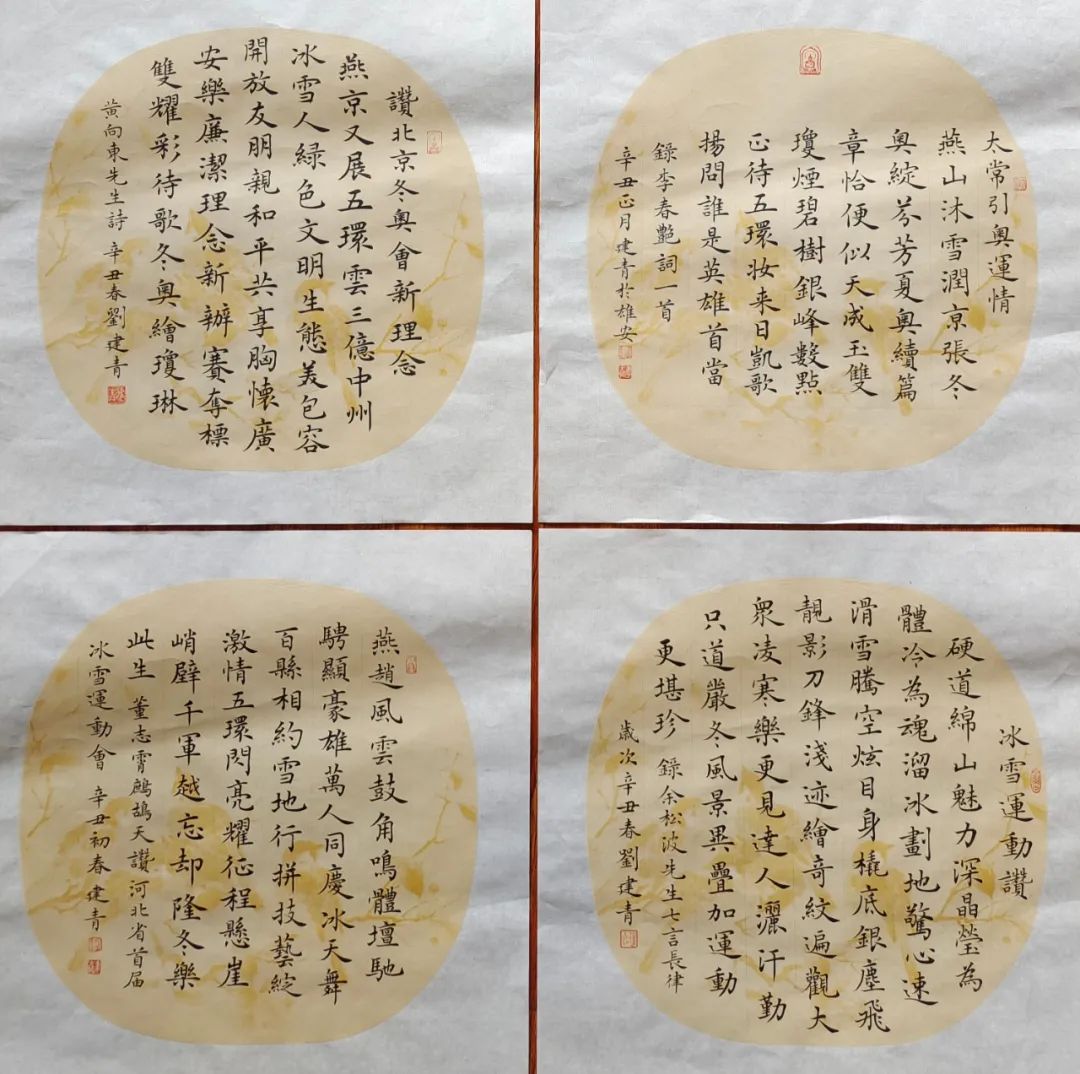 讚北京冬奧會新理念
燕京又展五環雲三億中州
冰雪人緑色文明生態美包容
開放友朋親和平共享胸懷廣
安樂廉潔理念新辦賽奪標
雙耀彩待歌冬奧繪瓊琳
黄向東先生詩 辛丑春劉建青
太常引奥運情
燕山沐雪潤京張冬
奥綻芬芳夏奥續篇
章恰便似天成玉雙
瓊煙碧樹銀峰數點
正待五環妆来日凱歌
揚問誰是英雄首當
錄李春艷詞一首
辛丑正月建青於雄安
燕趙風雲鼓角鳴體壇馳
騁顯豪雄萬人同慶冰天舞
百縣相約雪地行拼技藝綻
激情五環閃亮耀征程懸崖
峭壁千軍越忘却隆冬樂
此生 董志霄鷓鴣天讚河北省首届
冰雪運動會 辛丑初春建青
冰雪運動讚
硬道綿山魅力深晶瑩為
體冷為魂溜冰劃地驚心速
滑雪騰空炫目身橇底銀塵飛
靚影刀鋒淺迹繪奇紋遍觀大
衆凌寒樂更見達人灑汗勤
只道嚴冬風景異疊加運動
更堪珍 錄余松波先生七言長律
歲次辛丑春劉建青